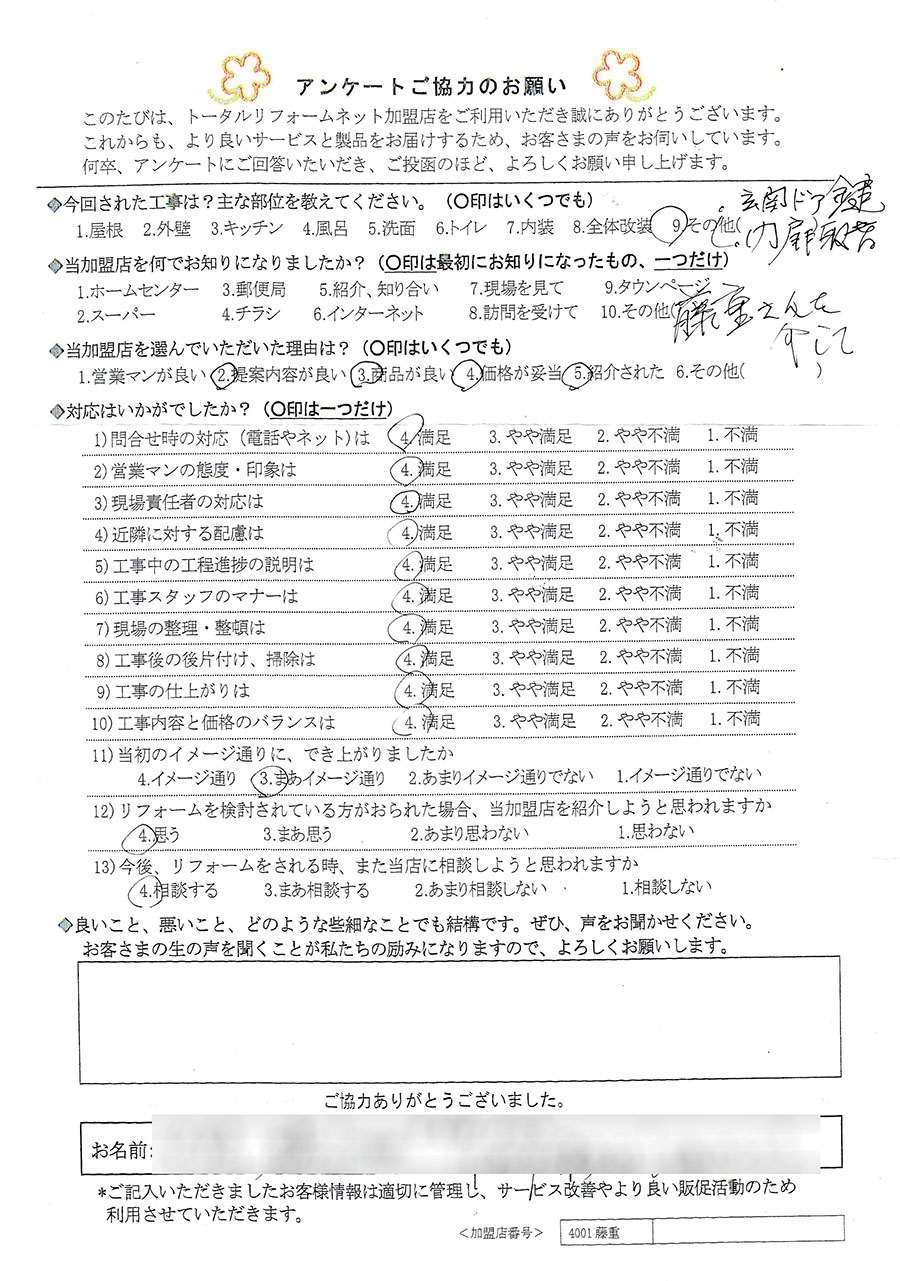 アンケートご協力のお願い
このたびは、トータルリフォームネット加盟店をご利用いただき誠にありがとうございます。
これからも、より良いサービスと製品をお届けするため、お客さまの声をお伺いしています。
何卒、アンケートにご回答いたいだき、ご投函のほど、よろしくお願い申し上げます。
◆今回された工事は？主な部位を教えてください。（〇印はいくつでも）
1.屋根 2.外壁 3.キッチン 4.風呂 5.洗面 6.トイレ 7.内装 8.全体改装 9.その他(
玄関ドア鍵
内扉取替
◆当加盟店を何でお知りになりましたか？（〇印は最初にお知りになったもの、一つだけ）
1.ホームセンター 3.郵便局 5.紹介、知り合い 7.現場を見て 9.タウンページ
2.スーパー 4.チラシ 6.インターネット 8.訪問を受けて 10.その他(
藤重さんを
介して
◆当加盟店を選んでいただいた理由は？（〇印はいくつでも）
1.営業マンが良い 2.提案内容が良い 3.商品が良い 4.価格が妥当 5.紹介された 6.その他( )
◆対応はいかがでしたか？（〇印は一つだけ）
1)問合せ時の対応（電話やネット)は 4.満足 3.やや満足 2.やや不満 1.不満
2)営業マンの態度・印象は 4.満足 3.やや満足 2.やや不満 1.不満
3)現場責任者の対応は 4.満足 3.やや満足 2.やや不満 1.不満
4)近隣に対する配慮は 4.満足 3.やや満足 2.やや不満 1.不満
5)工事中の工程進捗の説明は 4.満足 3.やや満足 2.やや不満 1.不満
6)工事スタッフのマナーは 4.満足 3.やや満足 2.やや不満 1.不満
7)現場の整理・整頓は 4.満足 3.やや満足 2.やや不満 1.不満
8)工事後の後片付け、掃除は 4.満足 3.やや満足 2.やや不満 1.不満
9)工事の仕上がりは 4.満足 3.やや満足 2.やや不満 1.不満
10)工事内容と価格のバランスは 4.満足 3.やや満足 2.やや不満 1.不満
11)当初のイメージ通りに、でき上がりましたか
4.イメージ通り 3.まあイメージ通り 2.あまりイメージ通りでない 1.イメージ通りでない
12)リフォームを検討されている方がおられた場合、当加盟店を紹介しようと思われますか
4.思う 3.まあ思う 2.あまり思わない 1.思わない
13)今後、リフォームをされる時、また当店に相談しようと思われますか
4.相談する 3.まあ相談する 2.あまり相談しない 1.相談しない
◆良いこと、悪いこと、どのような些細なことでも結構です。ぜひ、声をお聞かせください。
お客さまの生の声を聞くことが私たちの励みになりますので、よろしくお願いします。
ご協力ありがとうございました。
お名前:
*ご記入いただきましたお客様情報は適切に管理し、サービス改善やより良い販促活動のため
利用させていただきます。
＜加盟店番号＞ 4001藤重